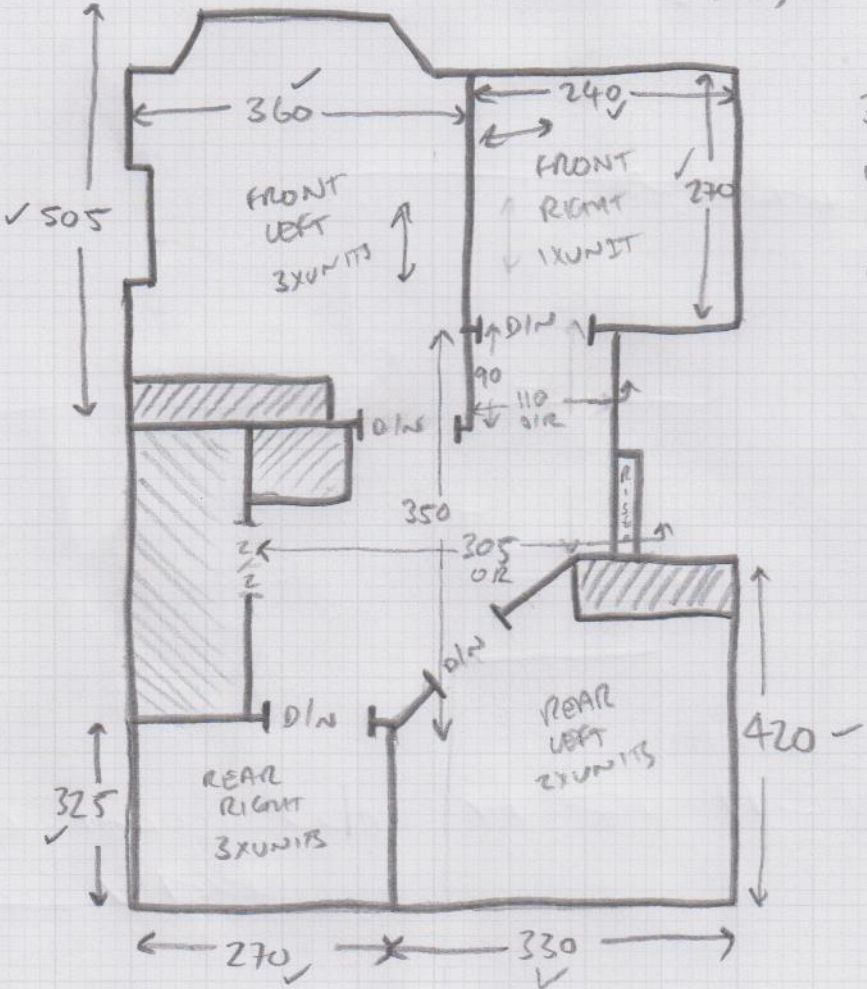 360
240
505
FRONT
LEFT
3XUNITS
FRONT
RIGHT
1XUNIT
270
D/N
90
110
O/R
D/N
350
305
O/R
D/N
D/N
REAR
RIGHT
3XUNITS
REAR
LEFT
2XUNITS
420
325
270
330